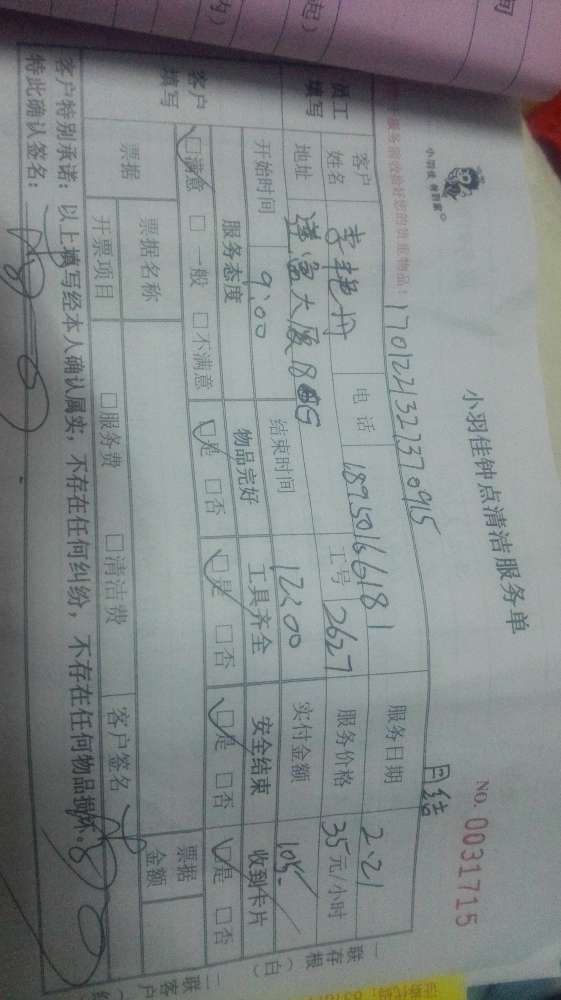 小羽佳钟点清洁服务单
NO. 0031715
小羽佳 家政
服务前请收捡好您的贵重物品!
1701221327370915
月结
员工填写
客户姓名 李艳丹 电话 18950166181 服务日期 2.21
地址 莲富大厦8G 工号 2627 服务价格 35元/小时
开始时间 9:00 结束时间 12:00 实付金额 105
客户填写
服务态度 物品完好 工具齐全 安全结束 收到卡片
☑满意 □一般 □不满意 ☑是 □否 ☑是 □否 ☑是 □否 ☑是 □否
票据 票据名称 票据金额
开票项目 □服务费 □清洁费 客户签名
客户特别承诺:以上填写经本人确认属实,不存在任何纠纷,不存在任何物品损坏。
特此确认签名:
一联存根(白)
二联客户